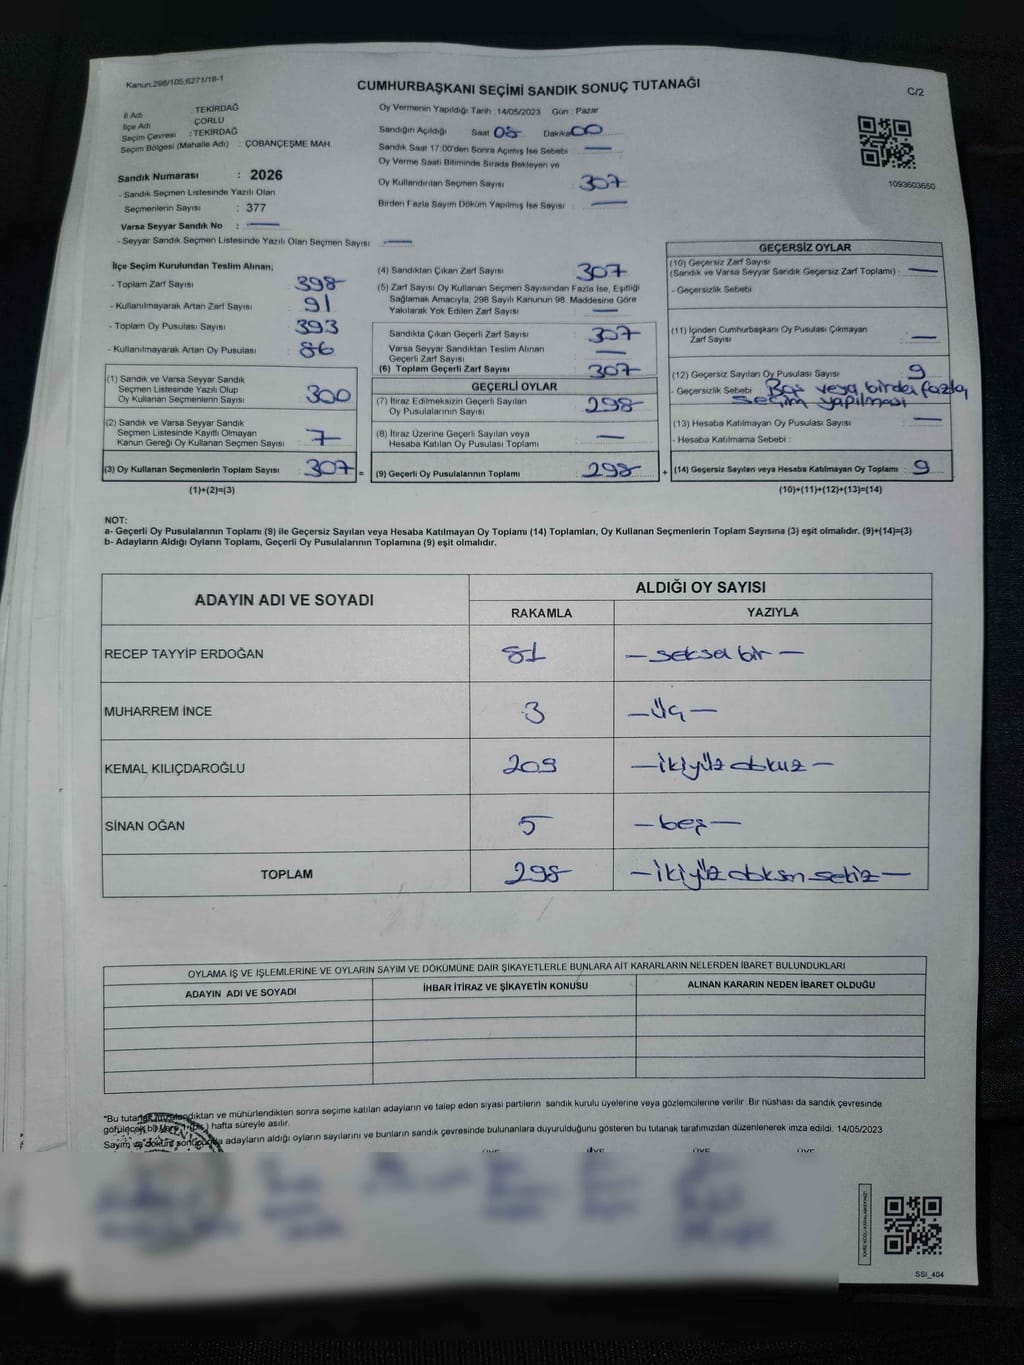 Kanun:298/105;6271/18-1
CUMHURBAŞKANI SEÇİMİ SANDIK SONUÇ TUTANAĞI
C/2
İl Adı : TEKİRDAĞ
İlçe Adı : ÇORLU
Seçim Çevresi : TEKİRDAĞ
Seçim Bölgesi (Mahalle Adı) : ÇOBANÇEŞME MAH.
Sandık Numarası : 2026
- Sandık Seçmen Listesinde Yazılı Olan
Seçmenlerin Sayısı : 377
Varsa Seyyar Sandık No : —
- Seyyar Sandık Seçmen Listesinde Yazılı Olan Seçmen Sayısı —
Oy Vermenin Yapıldığı Tarih : 14/05/2023 Gün : Pazar
Sandığın Açıldığı Saat 08 Dakika 00
Sandık Saat 17:00'den Sonra Açılmış İse Sebebi —
Oy Verme Saati Bitiminde Sırada Bekleyen ve
Oy Kullandırılan Seçmen Sayısı : 307
Birden Fazla Sayım Döküm Yapılmış İse Sayısı : —
1093603650
İlçe Seçim Kurulundan Teslim Alınan;
- Toplam Zarf Sayısı : 398
- Kullanılmayarak Artan Zarf Sayısı : 91
- Toplam Oy Pusulası Sayısı : 393
- Kullanılmayarak Artan Oy Pusulası : 86
(1) Sandık ve Varsa Seyyar Sandık
Seçmen Listesinde Yazılı Olup
Oy Kullanan Seçmenlerin Sayısı : 300
(2) Sandık ve Varsa Seyyar Sandık
Seçmen Listesinde Kayıtlı Olmayan
Kanun Gereği Oy Kullanan Seçmen Sayısı : 7
(3) Oy Kullanan Seçmenlerin Toplam Sayısı : 307 =
(1)+(2)=(3)
(4) Sandıktan Çıkan Zarf Sayısı : 307
(5) Zarf Sayısı Oy Kullanan Seçmen Sayısından Fazla İse, Eşitliği
Sağlamak Amacıyla; 298 Sayılı Kanunun 98. Maddesine Göre
Yakılarak Yok Edilen Zarf Sayısı : —
Sandıkta Çıkan Geçerli Zarf Sayısı : 307
Varsa Seyyar Sandıktan Teslim Alınan
Geçerli Zarf Sayısı : —
(6) Toplam Geçerli Zarf Sayısı : 307
GEÇERLİ OYLAR
(7) İtiraz Edilmeksizin Geçerli Sayılan
Oy Pusulalarının Sayısı : 298
(8) İtiraz Üzerine Geçerli Sayılan veya
Hesaba Katılan Oy Pusulaları Toplamı : —
(9) Geçerli Oy Pusulalarının Toplamı : 298 +
GEÇERSİZ OYLAR
(10) Geçersiz Zarf Sayısı
(Sandık ve Varsa Seyyar Sandık Geçersiz Zarf Toplamı) : —
- Geçersizlik Sebebi :
(11) İçinden Cumhurbaşkanı Oy Pusulası Çıkmayan
Zarf Sayısı : —
(12) Geçersiz Sayılan Oy Pusulası Sayısı : 9
- Geçersizlik Sebebi : Boş veya birden fazla
seçim yapılması
(13) Hesaba Katılmayan Oy Pusulası Sayısı : —
- Hesaba Katılmama Sebebi :
(14) Geçersiz Sayılan veya Hesaba Katılmayan Oy Toplamı : 9
(10)+(11)+(12)+(13)=(14)
NOT:
a- Geçerli Oy Pusulalarının Toplamı (9) ile Geçersiz Sayılan veya Hesaba Katılmayan Oy Toplamı (14) Toplamları, Oy Kullanan Seçmenlerin Toplam Sayısına (3) eşit olmalıdır. (9)+(14)=(3)
b- Adayların Aldığı Oyların Toplamı, Geçerli Oy Pusulalarının Toplamına (9) eşit olmalıdır.
ADAYIN ADI VE SOYADI
ALDIĞI OY SAYISI
RAKAMLA YAZIYLA
RECEP TAYYİP ERDOĞAN 81 — seksen bir —
MUHARREM İNCE 3 — üç —
KEMAL KILIÇDAROĞLU 209 — ikiyüz dokuz —
SİNAN OĞAN 5 — beş —
TOPLAM 298 — ikiyüz doksan sekiz —
OYLAMA İŞ VE İŞLEMLERİNE VE OYLARIN SAYIM VE DÖKÜMÜNE DAİR ŞİKAYETLERLE BUNLARA AİT KARARLARIN NELERDEN İBARET BULUNDUKLARI
ADAYIN ADI VE SOYADI İHBAR İTİRAZ VE ŞİKAYETİN KONUSU ALINAN KARARIN NEDEN İBARET OLDUĞU
*Bu tutanak imzalandıktan ve mühürlendikten sonra seçime katılan adayların ve talep eden siyasi partilerin sandık kurulu üyelerine veya gözlemcilerine verilir .Bir nüshası da sandık çevresinde
görülecek bir yere 1 (bir) hafta süreyle asılır.
Sayım ve döküm sonucunda adayların aldığı oyların sayılarını ve bunların sandık çevresinde bulunanlara duyurulduğunu gösteren bu tutanak tarafımızdan düzenlenerek imza edildi. 14/05/2023
SSI_404